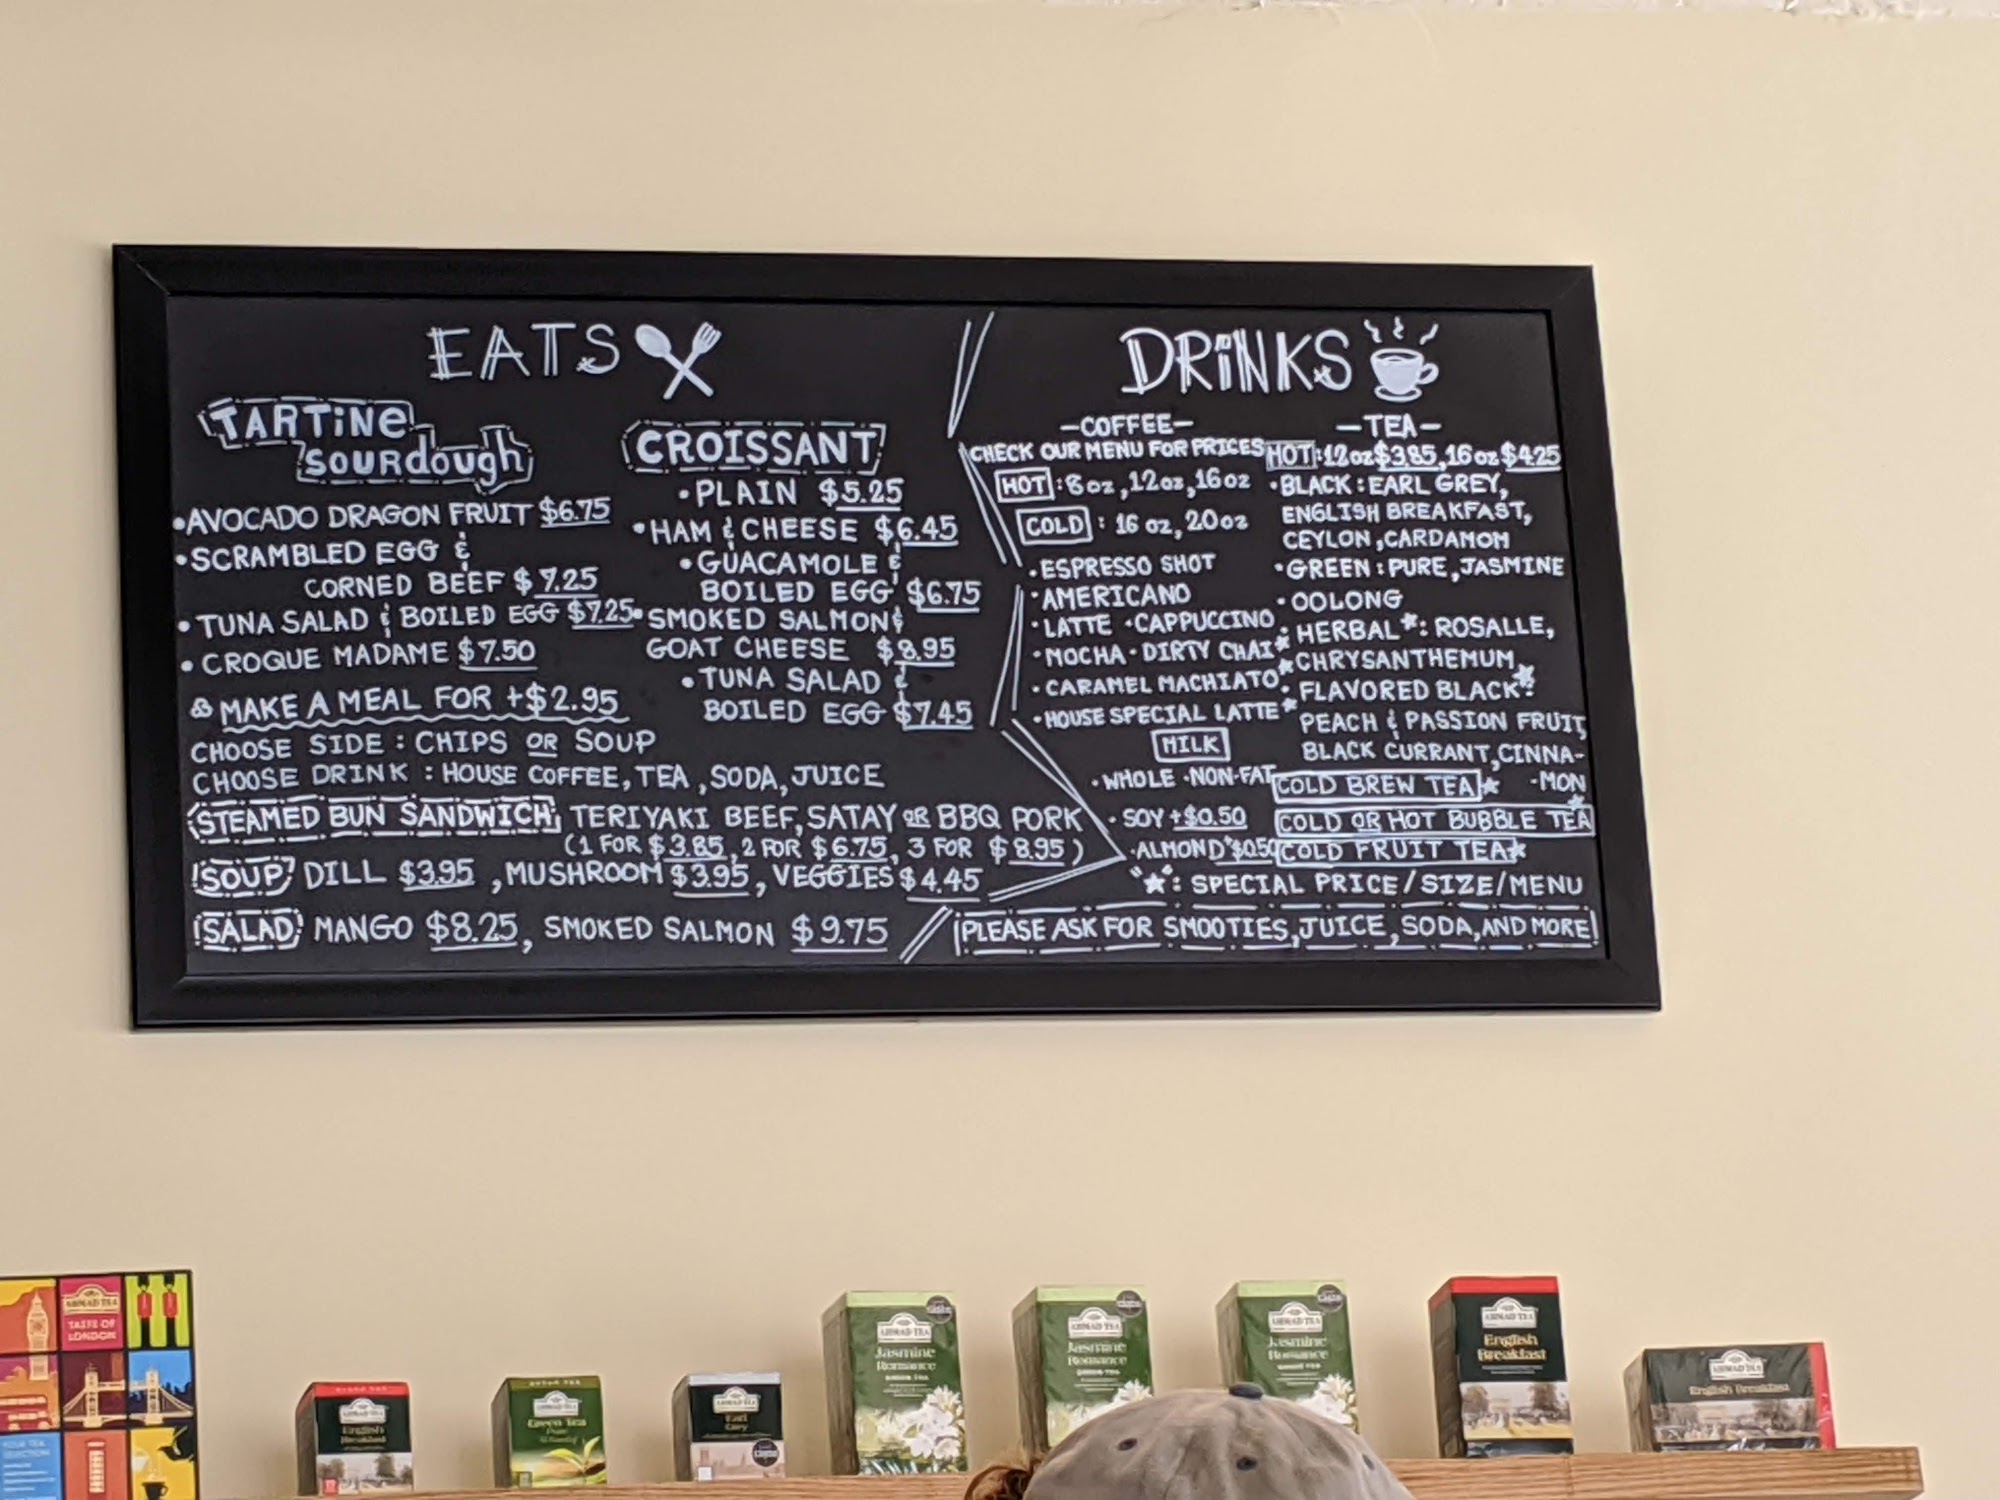 EATS
TARTiNe
SOURdough
•AVOCADO DRAGON FRUIT $6.75
•SCRAMBLED EGG &
CORNED BEEF $7.25
•TUNA SALAD & BOILED EGG $7.25
•CROQUE MADAME $7.50
& MAKE A MEAL FOR +$2.95
CHOOSE SIDE : CHIPS OR SOUP
CHOOSE DRINK : HOUSE COFFEE, TEA, SODA, JUICE
CROISSANT
•PLAIN $5.25
•HAM & CHEESE $6.45
•GUACAMOLE &
BOILED EGG $6.75
•SMOKED SALMON &
GOAT CHEESE $8.95
•TUNA SALAD &
BOILED EGG $7.45
STEAMED BUN SANDWICH: TERIYAKI BEEF, SATAY OR BBQ PORK
(1 FOR $3.85, 2 FOR $6.75, 3 FOR $8.95)
SOUP DILL $3.95, MUSHROOM $3.95, VEGGIES $4.45
SALAD MANGO $8.25, SMOKED SALMON $9.75
DRiNKS
—COFFEE—
CHECK OUR MENU FOR PRICES
HOT : 8oz, 12oz, 16oz
COLD : 16 oz, 20oz
•ESPRESSO SHOT
•AMERICANO
•LATTE •CAPPUCCINO
•MOCHA •DIRTY CHAI★
•CARAMEL MACHIATO★
•HOUSE SPECIAL LATTE★
MILK
•WHOLE •NON-FAT
•SOY +$0.50
•ALMOND+$0.50
—TEA—
HOT: 12oz $3.85, 16oz $4.25
•BLACK : EARL GREY,
ENGLISH BREAKFAST,
CEYLON, CARDAMOM
•GREEN : PURE, JASMINE
•OOLONG
•HERBAL★: ROSALLE,
CHRYSANTHEMUM
•FLAVORED BLACK★:
PEACH & PASSION FRUIT,
BLACK CURRANT, CINNA-
-MON
COLD BREW TEA★
COLD OR HOT BUBBLE TEA★
COLD FRUIT TEA★
"★": SPECIAL PRICE/SIZE/MENU
PLEASE ASK FOR SMOOTIES, JUICE, SODA, AND MORE
AHMAD TEA
TASTE OF
LONDON
AHMAD TEA
English
Breakfast
AHMAD TEA
Green Tea
Pure
AHMAD TEA
Earl
Grey
AHMAD TEA
Jasmine
Romance
GREEN TEA
AHMAD TEA
Jasmine
Romance
GREEN TEA
AHMAD TEA
Jasmine
Romance
GREEN TEA
AHMAD TEA
English
Breakfast
AHMAD TEA
English Breakfast